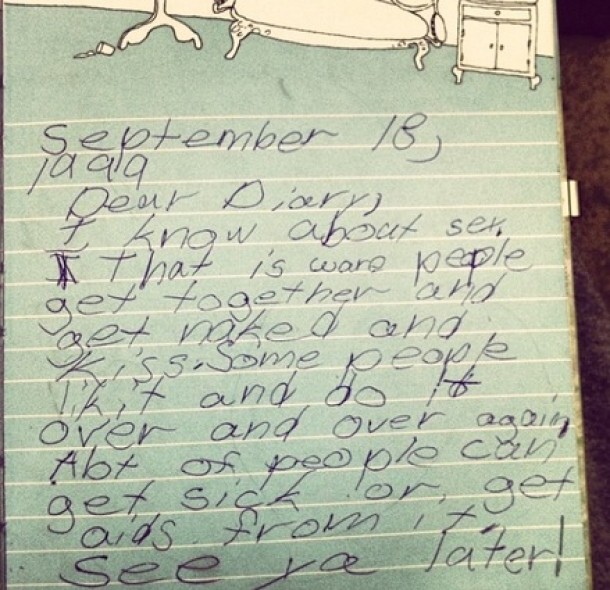 September 18,
1999
Dear Diary,
I know about sex.
That is ware people
get together and
get naked and
kiss. Some people
lik it and do it
over and over again
Alot of people can
get sick or get
aids from it.
See ya later!